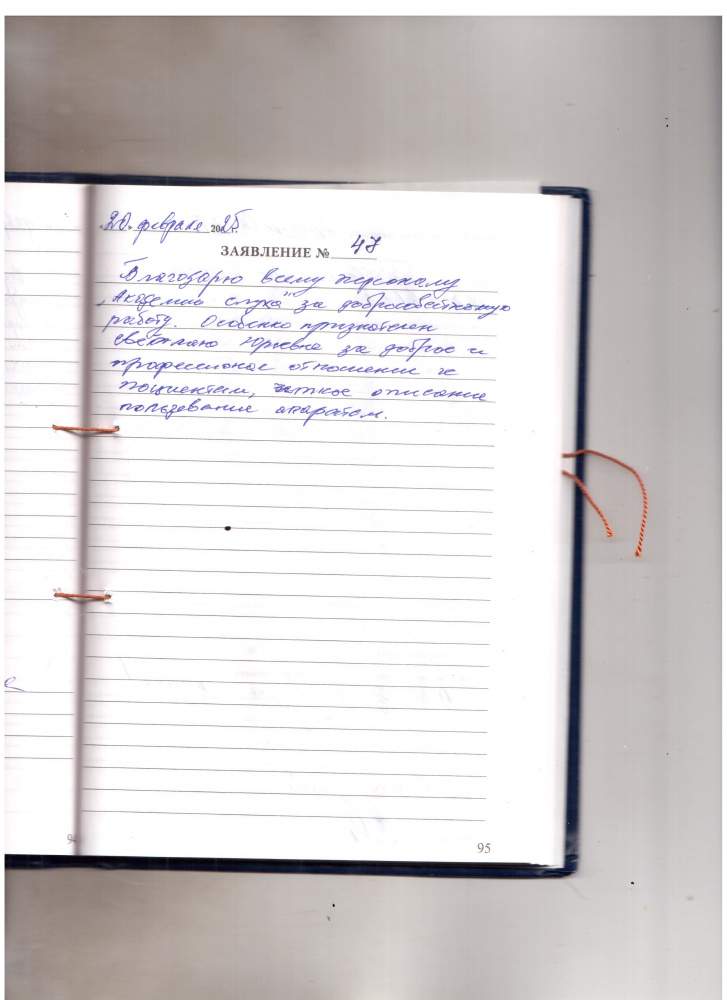 «20» февраля 2025 г.
ЗАЯВЛЕНИЕ № 47
Благодарю всему персоналу
„Академии слуха" за добросовестную
работу. Особенно признателен
Светлане Юрьевне за доброе и
професионое отношении к
пациентам, чіткое описание
пользевание апаратом.
94
95